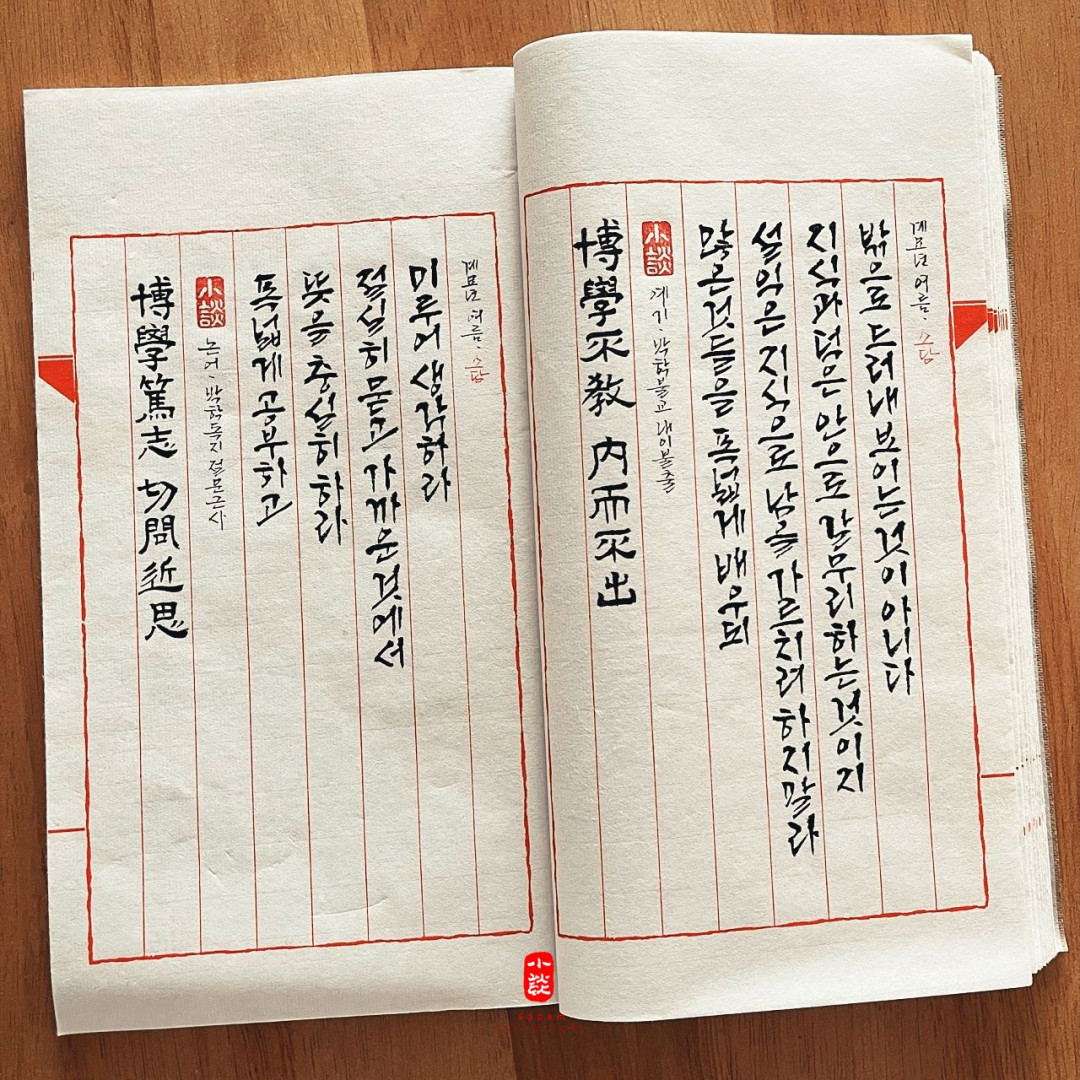 博學篤志 切問近思
小談
논어 · 박학독지 절문근사
폭넓게 공부하고
뜻을 충실히하라
절실히 묻고 가까운것에서
미루어 생각하라
계묘년 여름. 소담
博學不教 内而不出
小談
예기 · 박학불교 내이불출
많은것들을 폭넓게 배우되
설익은 지식으로 남을 가르치려 하지말라
지식과 덕은 안으로 갈무리하는것이지
밖으로 드러내 보이는것이 아니다
계묘년 여름. 소담
小談